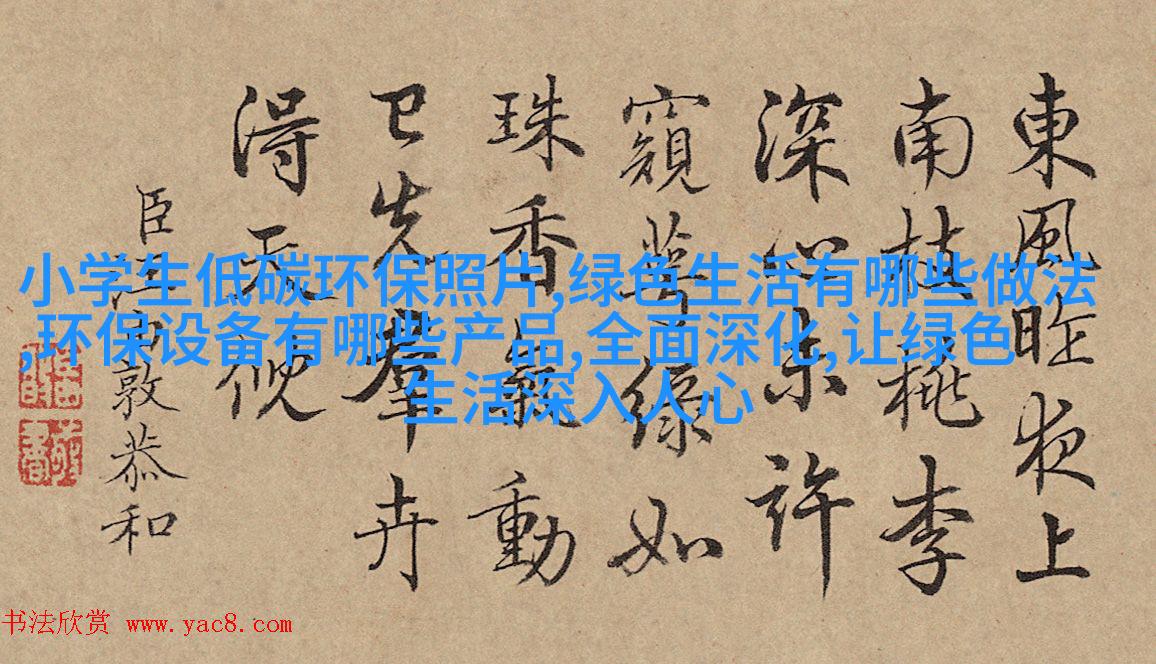 東風昨夜上
南枝桃李
深心未許
窺萼綠如
珠香氣動
已先羣卉
得天倪
臣汪由敦恭和
小学生低碳环保照片,绿色生活有哪些做法
,环保设备有哪些产品,全面深化,让绿色
生活深入人心
书法欣赏 www.yac8.com